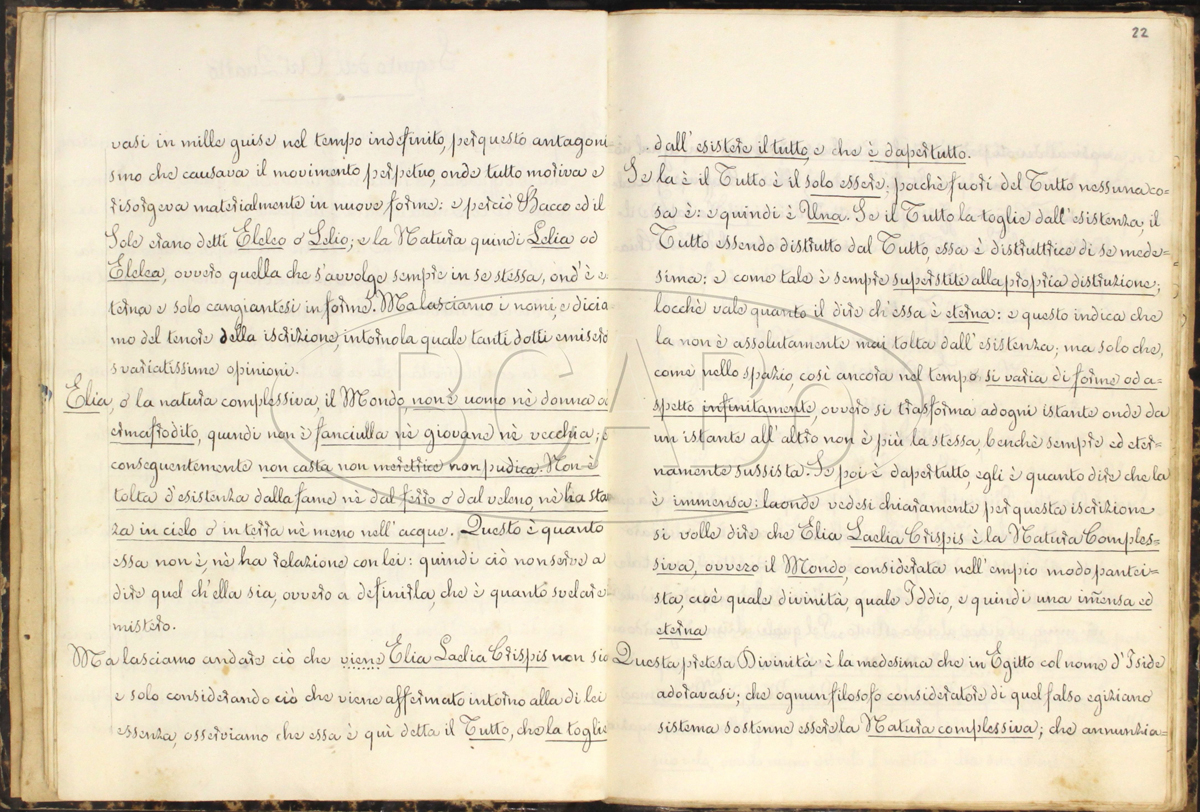 vasi in mille guise nel tempo indefinito, per questo antagoni
smo che causava il movimento perpetuo, onde tutto moriva e
risorgeva materialmente in nuove forme: e perciò Bacco ed il
Sole erano detti Eleleo o Lelio; e la Natura quindi Lelia od
Elelea, ovvero quella che s'avvolge sempre in se stessa, ond'è e
terna e solo cangiantesi in forme. Ma lasciamo i nomi, e dicia
mo del tenore della iscrizione, intorno la quale tanti dotti emisero
svariatissime opinioni.
Elia, o la natura complessiva, il Mondo, non è uomo nè donna od
ermafrodito, quindi non è fanciulla nè giovane nè vecchia; e
conseguentemente non casta non meretrice non pudica. Non è
tolta d'esistenza dalla fame nè dal ferro o dal veleno, nè ha sta
za in cielo o in terra nè meno nell'acque. Questo è quanto
essa non è, nè ha relazione con lei: quindi ciò non serve a
dire quel ch'ella sia, ovvero a definirla, che è quanto svelare
mistero.
Ma lasciamo andare ciò che viene Elia Laelia Crispis non sia
e solo considerando ciò che viene affermato intorno alla di lei
essenza, osserviamo che essa è quì detta il Tutto, che la toglie
22
dall'esistere il tutto, e che è dapertutto.
Se la è il Tutto è il solo essere; poichè fuori del Tutto nessuna co-
sa è: e quindi è Una. Se il Tutto la toglie dall'esistenza, il
Tutto essendo distrutto dal Tutto, essa è distruttrice di se mede-
sima: e come tale è sempre superstite alla propria distruzione;
locchè vale quanto il dire ch'essa è eterna: e questo indica che
la non è assolutamente mai tolta dall'esistenza; ma solo che,
come nello spazio, così ancora nel tempo si varia di forme od a-
spetto infinitamente, ovvero si trasforma ad ogni istante onde da
un istante all'altro non è più la stessa, benchè sempre ed eter-
namente sussista. Se poi è dapertutto, egli è quanto dire che la
è immensa: laonde vedesi chiaramente per questa iscrizione
si volle dire che Elia Laelia Crispis è la Natura Comples-
siva, ovvero il Mondo, considerata nell'empio modo pantei-
sta, cioè quale divinità, quale Iddio, e quindi una im̃ensa ed
eterna
Questa pretesa Divinità è la medesima che in Egitto col nome d'Iside
adoravasi; che ognun filosofo consideratore di quel falso egiziano
sistema sostenne essere la Natura complessiva; che annunzia-
BCABo